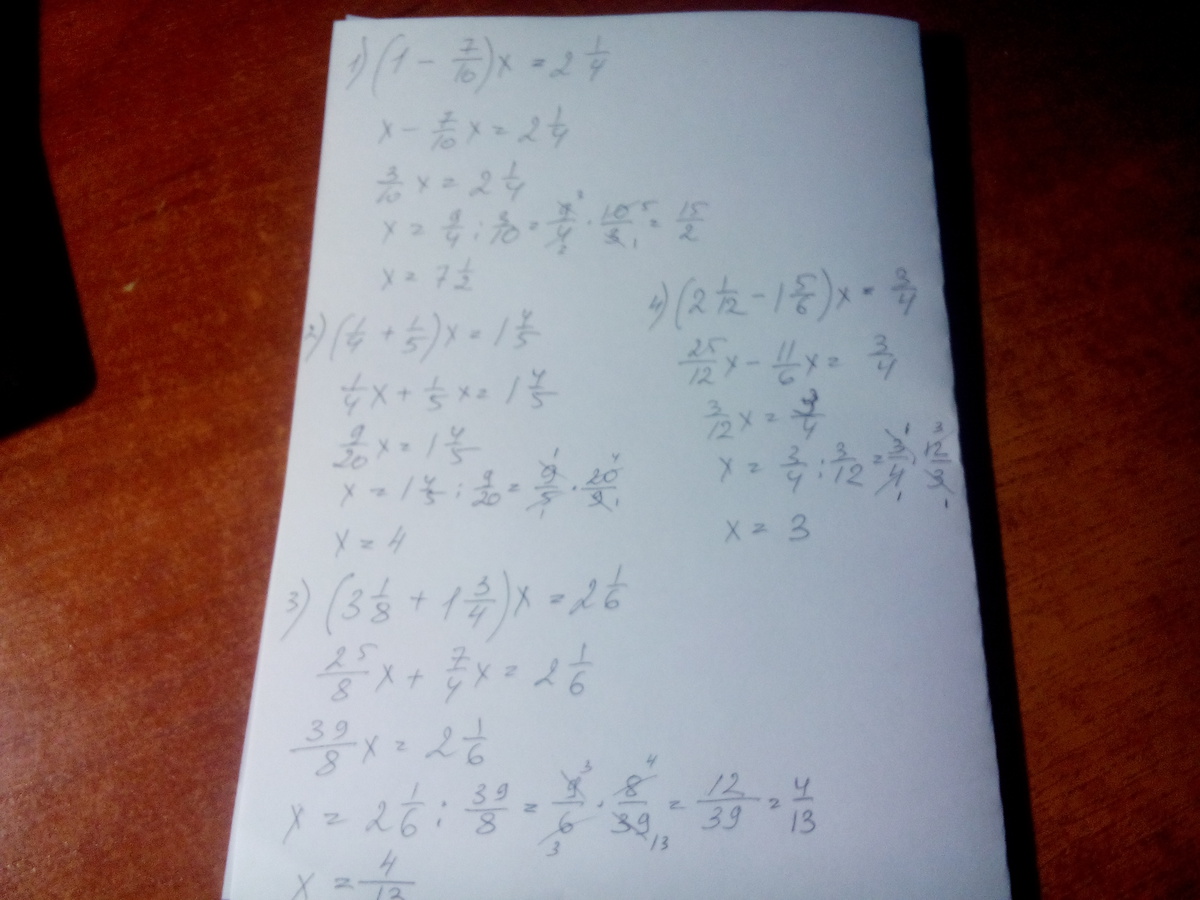 1) (1 - 7/10)x = 2 1/4
x - 7/10 x = 2 1/4
3/10 x = 2 1/4
x = 9/4 : 3/10 = 9/4 · 10/3 = 15/2
x = 7 1/2
2) (1/4 + 1/5)x = 1 4/5
1/4 x + 1/5 x = 1 4/5
9/20 x = 1 4/5
x = 1 4/5 : 9/20 = 9/5 · 20/9
x = 4
3) (3 1/8 + 1 3/4)x = 2 1/6
25/8 x + 7/4 x = 2 1/6
39/8 x = 2 1/6
x = 2 1/6 : 39/8 = 9/6 · 8/39 = 12/39 = 4/13
x = 4/13
4) (2 1/12 - 1 5/6)x = 3/4
25/12 x - 11/6 x = 3/4
3/12 x = 3/4
x = 3/4 : 3/12 = 3/4 · 12/3
x = 3